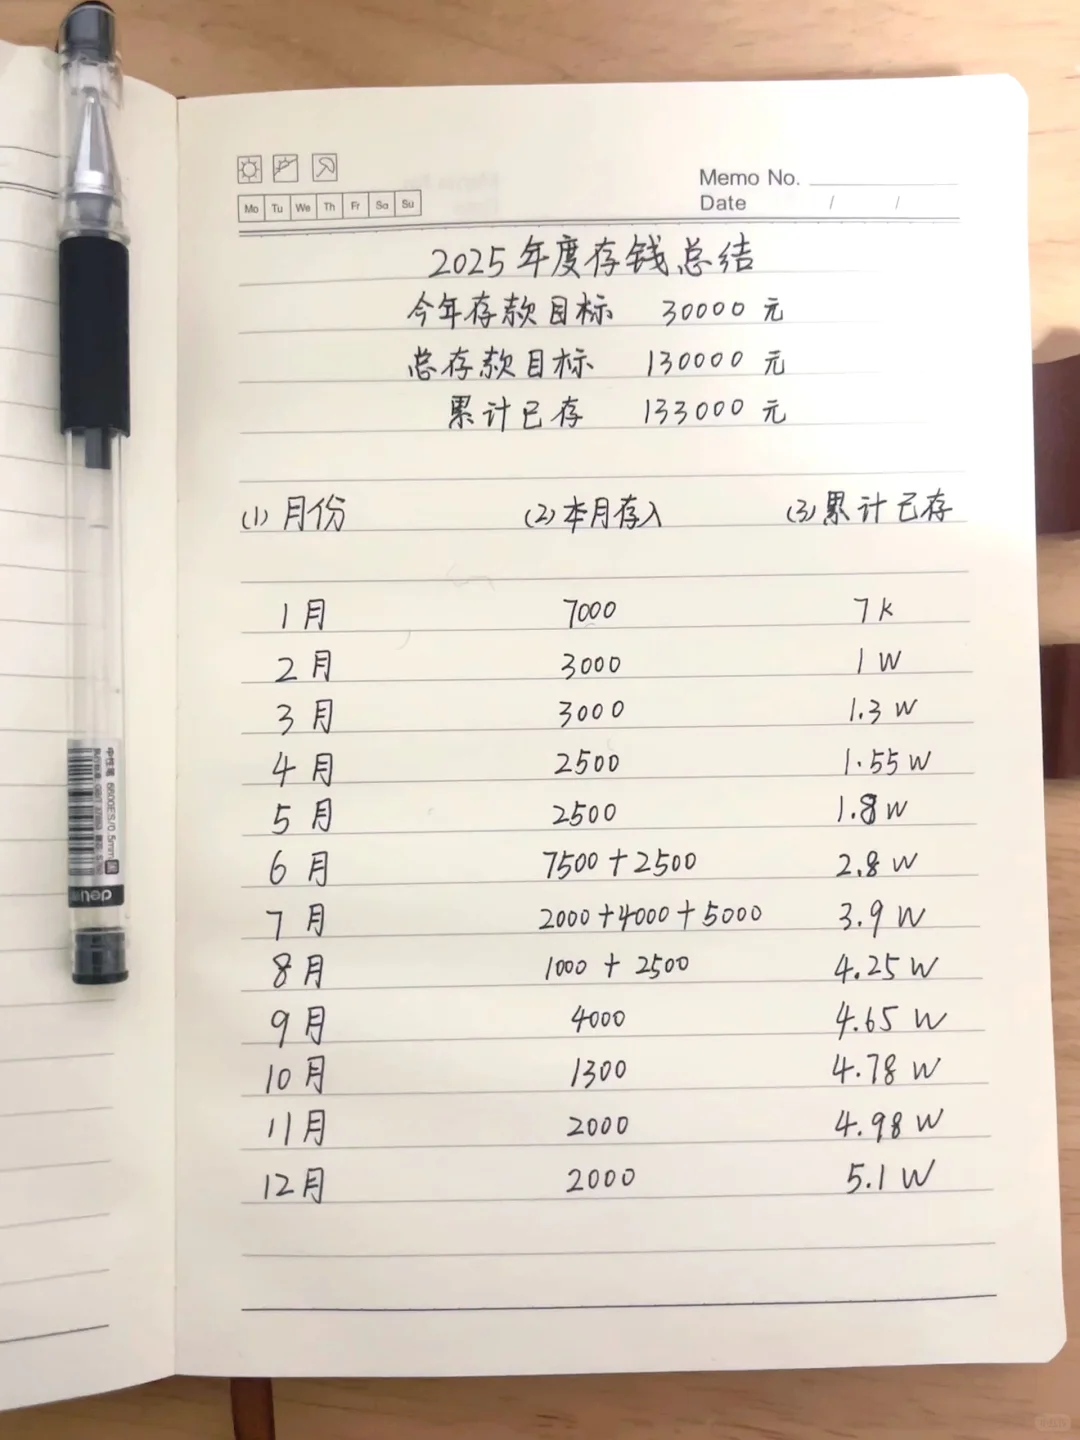 Memo No.
Mo Tu We Th Fr Sa Su
Date / /
2025年度存钱总结
今年存款目标 30000 元
总存款目标 130000 元
累计已存 133000 元
(1) 月份 (2) 本月存入 (3) 累计已存
1月 7000 7k
2月 3000 1W
3月 3000 1.3W
4月 2500 1.55W
5月 2500 1.8W
6月 7500+2500 2.8W
7月 2000+4000+5000 3.9W
8月 1000+2500 4.25W
9月 4000 4.65W
10月 1300 4.78W
11月 2000 4.98W
12月 2000 5.1W
中性笔 6600ES/0.5mm
deli